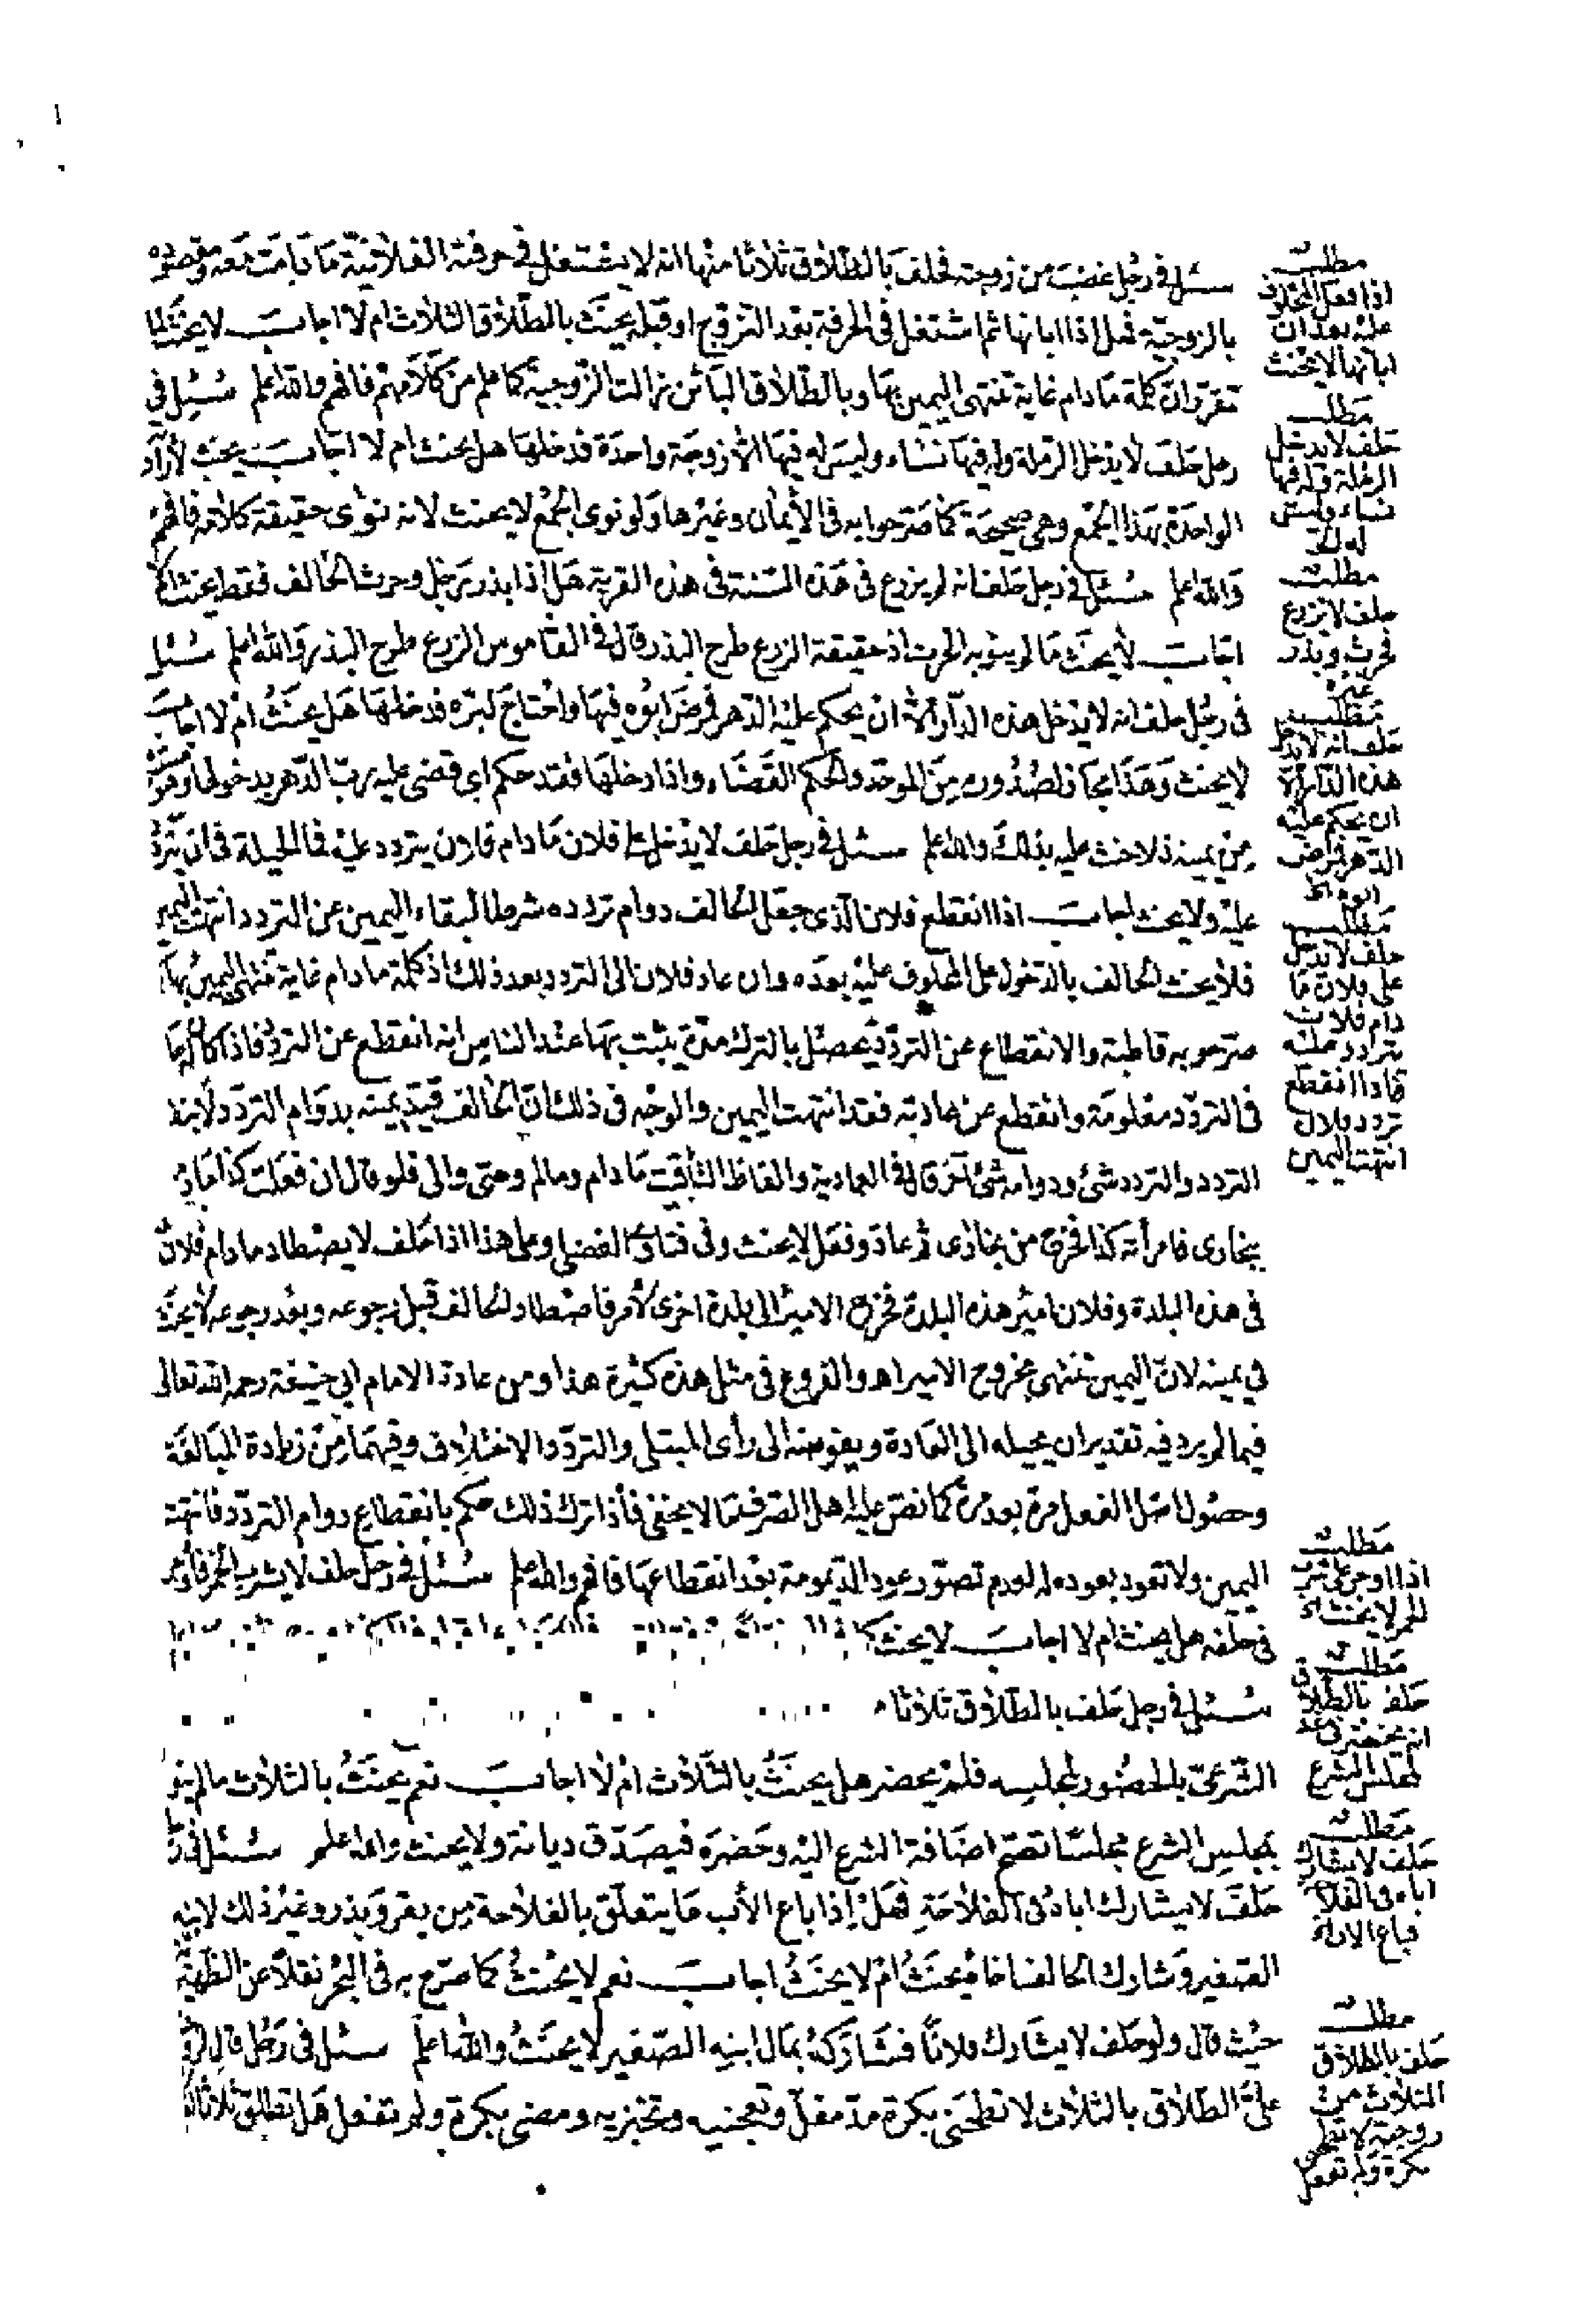 سئل في رجل غضب من زوجته فحلف بالطلاق ثلاثا منها انه لا يشتغل في حرفته الفلانية ما دامت معه وقصده
بالزوجية فهل اذا ابانها ثم اشتغل في الحرفة بعد التزوج او قبله يحنث بالطلاق الثلاث ام لا اجاب لا يحنث لما
تقرر ان كلمة ما دام غاية تنتهي اليمين بها وبالطلاق البائن زالت الزوجية كما علم من كلامهم فافهم والله اعلم سئل في
رجل حلف لا يدخل الرملة وله فيها نساء وليس له فيها الا زوجة واحدة فدخلها هل يحنث ام لا اجاب يحنث لارادة
الواحدة بهذا الجمع وهي صحيحة كما صرحوا به في الأيمان وغيرها ولو نوى الجمع لا يحنث لانه نوى حقيقة كلامه فافهم
والله اعلم سئل في رجل حلف انه لم يزرع في هذه السنة في هذه القرية هل اذا بذر رجل وحرث الحالف فقط يحنث ام لا
اجاب لا يحنث ما لم ينو به الحرث اذ حقيقة الزرع طرح البذر قال في القاموس الزرع طرح البذر والله اعلم سئل
في رجل حلف انه لا يدخل هذه الدار الا ان يحكم عليه الدهر فمرض ابوه فيها واحتاج لبره فدخلها هل يحنث ام لا اجاب
لا يحنث وهذا مجاز لصدوره من الموحد والحكم القضاء واذا دخلها فقد حكم اي قضى عليه رب الدهر بدخولها وهو مستثنى
من يمينه فلا حنث عليه بذلك والله اعلم سئل في رجل حلف لا يدخل على فلان ما دام فلان يتردد عليه فما الحيلة في ان يتردد
عليه ولا يحنث اجاب اذا انقطع فلان الذي جعل الحالف دوام تردده شرطا لبقاء اليمين عن التردد انتهت اليمين
فلا يحنث الحالف بالدخول على المحلوف عليه بعده وان عاد فلان الى التردد بعد ذلك اذ كلمة ما دام غاية تنتهي اليمين بها كما
صرحوا به قاطبة والانقطاع عن التردد يحصل بالترك مدة يثبت بها عند الناس انه انقطع عن التردد فاذا كان له عادة
في التردد معلومة وانقطع عن عادته فقد انتهت اليمين والوجه في ذلك ان الحالف قيد يمينه بدوام التردد لا بنفس
التردد والتردد شئ ودوامه شئ آخر قال في العمادية والفاظ التأقيت ما دام وما لم وحتى والى فلو قال ان فعلت كذا ما دمت
ببخارى فامرأته كذا فخرج من بخارى ثم عاد وفعل لا يحنث وفي فتاوى الفضلي وعلى هذا اذا حلف لا يصطاد ما دام فلان
في هذه البلدة وفلان امير هذه البلدة فخرج الامير الى بلدة اخرى لأمر فاصطاد الحالف قبل رجوعه وبعد رجوعه لا يحنث
في يمينه لان اليمين تنتهي بخروج الامير اهـ والفروع في مثل هذه كثيرة هذا ومن عادة الامام ابي حنيفة رحمه الله تعالى
فيما لم يرد فيه تقدير ان يحيله الى العادة ويفوضه الى رأى المبتلى والتردد الاختلاف وفيهما من زيادة المبالغة
وحصول اصل الفعل مرة بعد مرة كما نص عليه اهل الصرف ما لا يخفى فاذا ترك ذلك حكم بانقطاع دوام التردد فانتهت
اليمين ولا تعود بعوده له لعدم تصور عود الديمومة بعد انقطاعها فافهم والله اعلم سئل في رجل حلف لا يشرب الخمر فأوجر
في حلقه هل يحنث ام لا اجاب لا يحنث
سئل في رجل حلف بالطلاق ثلاثا
الشرعى بالحضور لمجلسه فلم يحضر هل يحنث بالثلاث ام لا اجاب نعم يحنث بالثلاث ما لم ينو
بمجلس الشرع مجلسا تصح اضافة الشرع اليه وحضره فيصدق ديانة ولا يحنث والله اعلم سئل في رجل
حلف لا يشارك اباه في الفلاحة فهل إذا باع الأب ما يتعلق بالفلاحة من بقر وبذر وغير ذلك لابنه
الصغير وشارك الحالف اخاه يحنث ام لا يحنث اجاب نعم لا يحنث كما صرح به في البحر نقلا عن الظهيرية
حيث قال ولو حلف لا يشارك فلانا فشاركه بمال ابنه الصغير لا يحنث والله اعلم سئل في رجل قال لزوجته
على الطلاق بالثلاث لا تطحني بكرة مد مغل وتعجنيه وتخبزيه ومضى بكرة ولم تفعل هل تطلق ثلاثا ام لا
مطلب
اذا فعل المحلوف
عليه بعد ان
ابانها لا يحنث
مطلب
حلف لا يدخل
الرملة وله فيها
نساء وليس
له الخ
مطلب
حلف لا يزرع
فحرث وبذر
غيره
مطلب
حلف انه لا يدخل
هذه الدار الا
ان يحكم عليه
الدهر فمرض
ابوه الخ
مطلب
حلف لا يدخل
على فلان ما
دام فلان
يتردد عليه
فاذا انقطع
تردد فلان
انتهت اليمين
مطلب
اذا اوجر على شرب
الخمر لا يحنث
مطلب
حلف بالطلاق
انه يحضر في غد
لمجلس الشرع
مطلب
حلف لا يشارك
اباه في الفلاحة
فباع الاب
مطلب
حلف بالطلاق
الثلاث من
زوجته لا تطحن
بكرة ولم تفعل